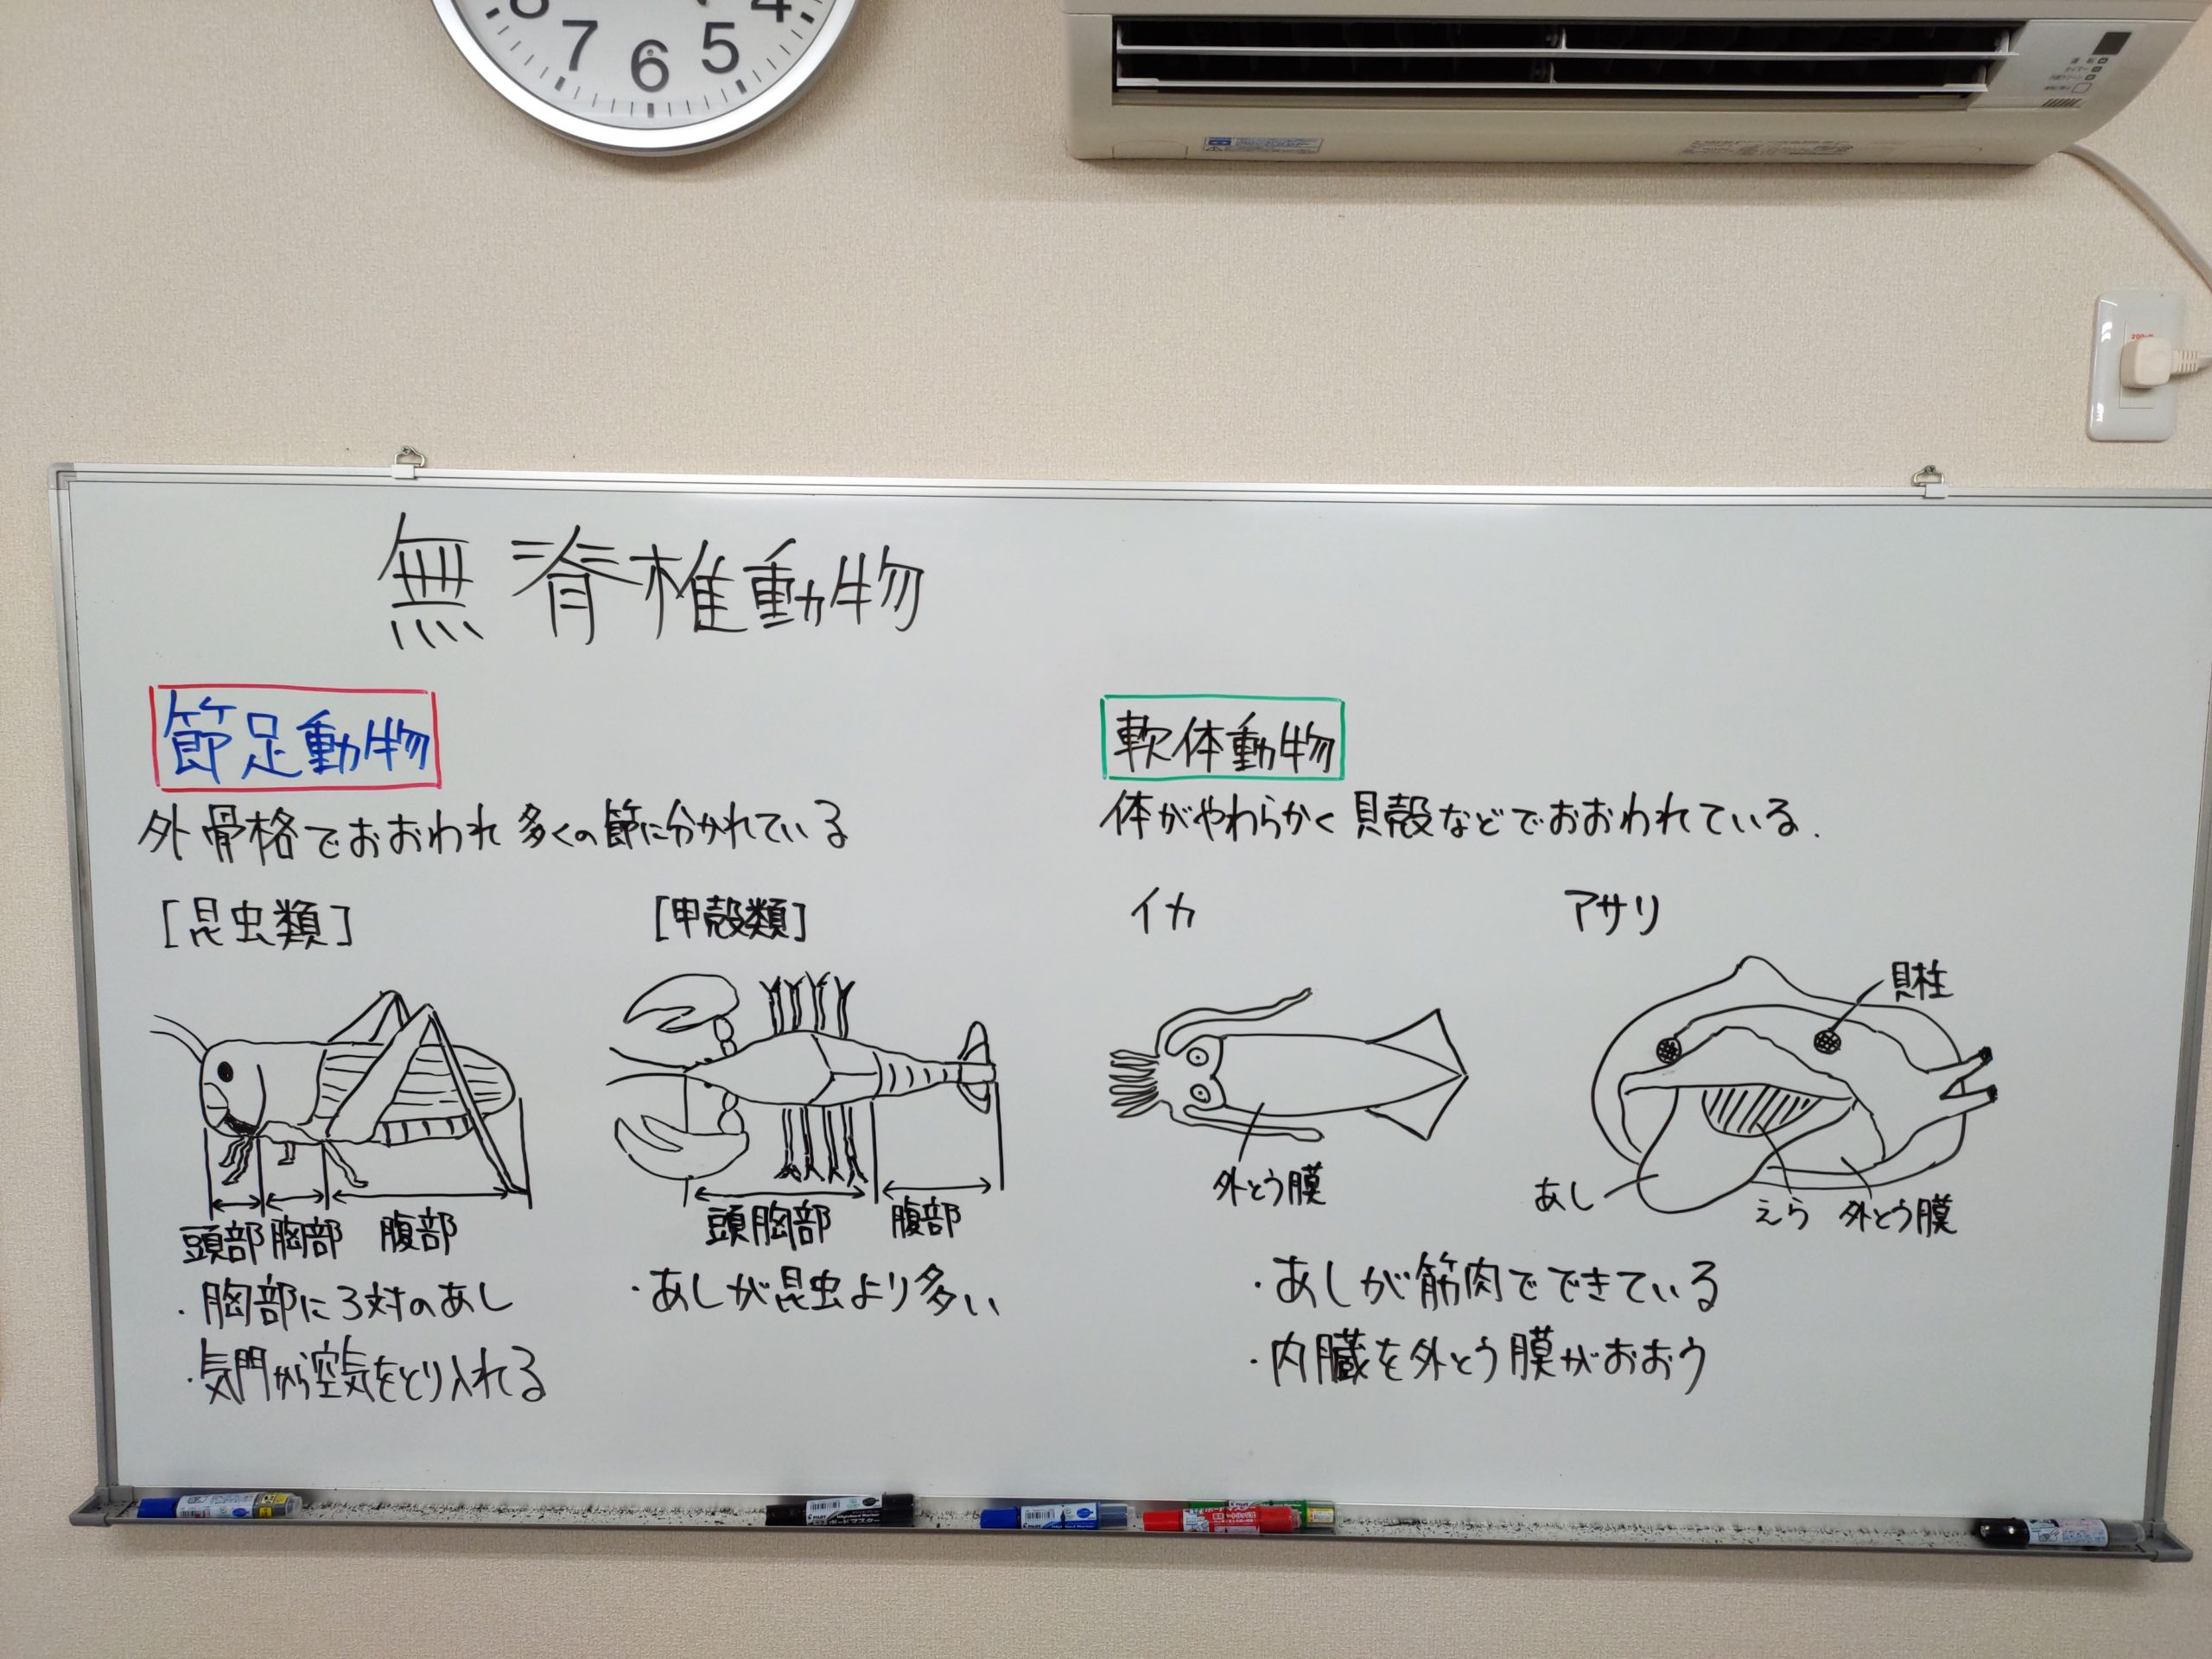 7 6 5 4
無脊椎動物
節足動物
外骨格でおおわれ多くの節に分かれている
[昆虫類]
頭部 胸部 腹部
・胸部に3対のあし
・気門から空気をとり入れる
[甲殻類]
頭胸部 腹部
・あしが昆虫より多い
軟体動物
体がやわらかく貝殻などでおおわれている.
イカ
外とう膜
アサリ
貝柱
あし えら 外とう膜
・あしが筋肉でできている
・内臓を外とう膜がおおう
PILOT